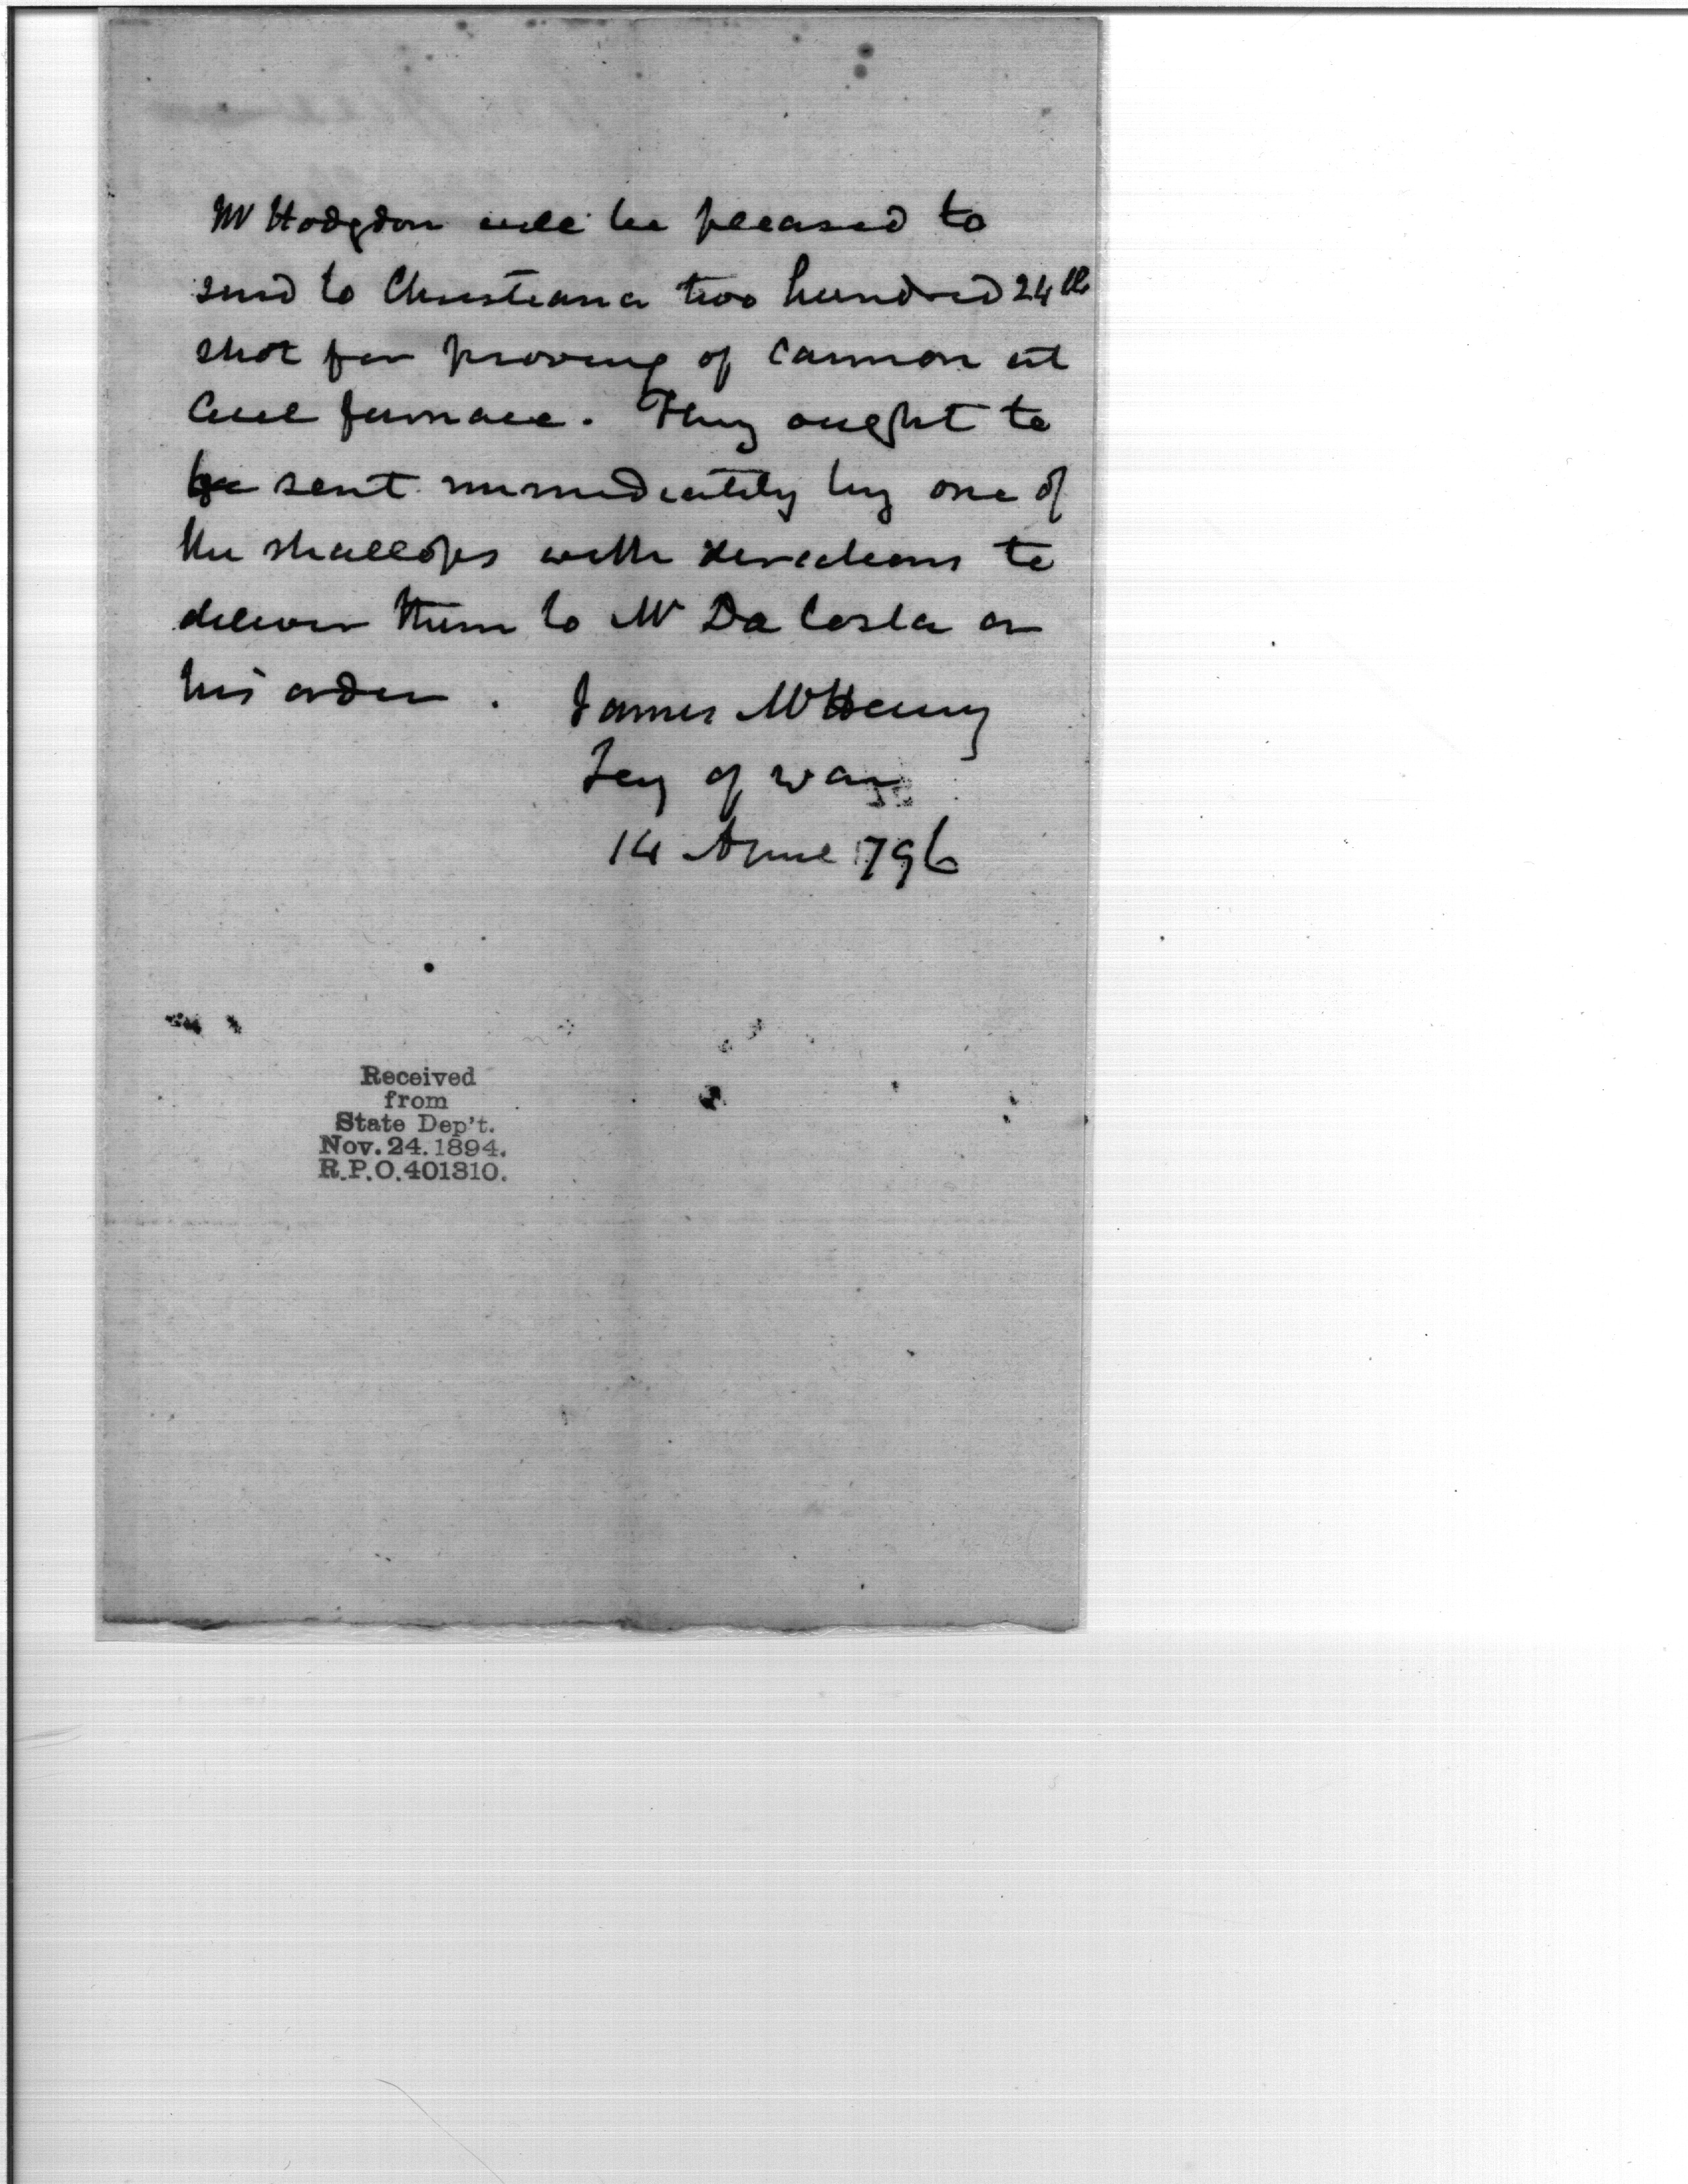 Mr Hodgdon will be pleased to
send to Christiana two hundred 24 lb
shot for proving of cannon at
Cecil furnace. They ought to
be sent immediately by one of
the shallops with directions to
deliver them to Mr Da Costa or
his order.
James McHenry
Secy of war
14 April 1796
Received
from
State Dep't.
Nov. 24. 1894.
R.P.O. 401310.